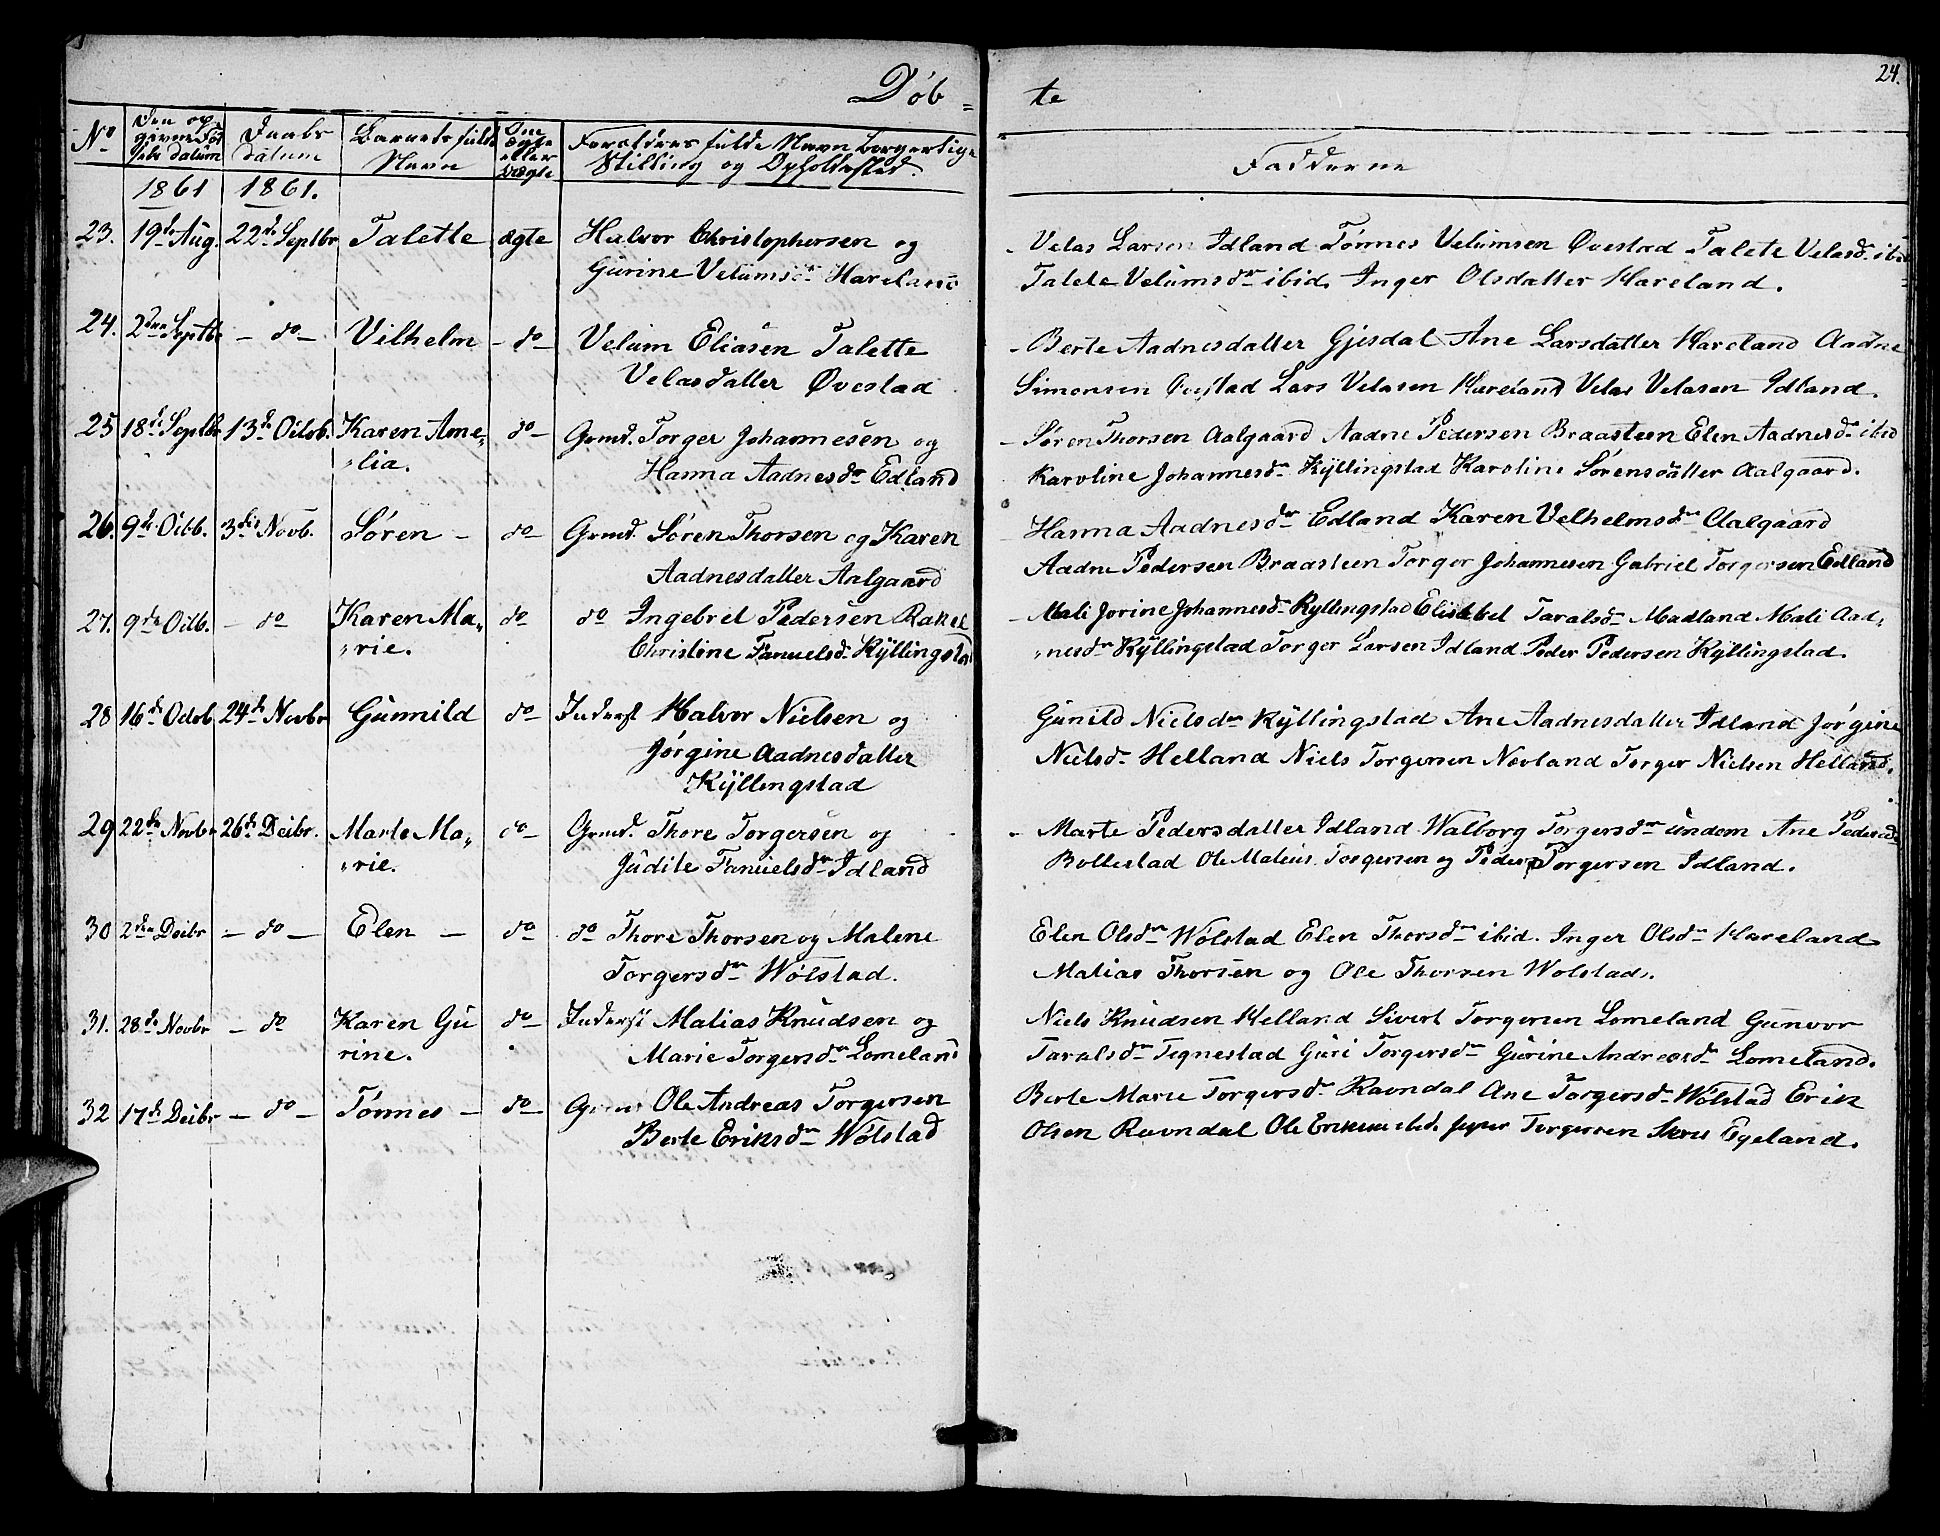 24.
Døb = te
No
Den op=
givne Fød
sels datum
Daabs
datum
Barnets fulde
Navn
Om
ægte
eller
uægte
Forældres fulde Navn borgerlige
Stilling og Opholdssted.
Fadderne
1861 1861.
23. 19de Aug. 22de Septbr Talette ægte Halvor Christophersen og
Gurine Velumsdr Hareland
- Velas Larsen Idland Tønnes Velumsen Øvestad Talete Velasdr ibid
Talete Velumsdr ibid. Inger Olsdatter Hareland.
24. 2den Septbr - do - Vilhelm - do - Velum Eliasen Talette
Velasdatter Øvestad
- Berte Aadnesdatter Gjesdal Ane Larsdatter Hareland Aadne
Simonsen Øvestad Lars Velasen Hareland Velas Velasen Idland.
25 18de Septbr 13de Octob. Karen Ame„
„lia. do - Grmd. Torger Johannesen og
Hanna Aadnesdr Edland
- Søren Thorsen Aalgaard Aadne Pedersen Braasteen Elen Aadnesdr ibid
Karoline Johannesdr Kÿllingstad Karoline Sørensdatter Aalgaard.
26. 9de Octb. 3die Novb. Søren - do - Grmd. Søren Thorsen og Karen
Aadnesdatter Aalgaard
Hanna Aadnesdr Edland Karen Velhelmsdr Aalgaard
Aadne Pedersen Braasteen Torger Johannesen Gabriel Torgersen Edland
27. 9de Octb. - do Karen Ma„
„rie. do do Ingebret Pedersen Rakel
Christine Fanuelsdr Kÿllingstad
- Mali Jorine Johannesdr Kyllingstad Elisebet Taralsdr Madland Mali Aad„
„nesdr Kÿllingstad Torger Larsen Idland Peder Pedersen Kÿllingstad.
28 16de Octob 24de Novbr Gunnild do - Inderst Halvor Nielsen og
Jørgine Aadnesdatter
Kÿllingstad
Gunild Nielsdr Kÿllingstad Ane Aadnesdatter Idland Jørgine
Nielsdr Helland Niels Torgersen Novland Torger Nielsen Helland.
29 22de Novbr 26de Decbr. Marte Ma„
„rie. do - Grmd. Thore Torgersen og
Judite Fanuelsdr Idland
- Marte Pedersdatter Idland Walborg Torgersdr Undem Ane Pedersdr
Bollestad Ole Mateus Torgersen og Peder Torgersen Idland.
30 2den Decbr - do - Elen - do do Thore Thorsen og Malene
Torgersdr Wølstad.
Elen Olsdr Wølstad Elen Thorsdr ibid. Inger Olsdr Hareland
Matias Thorsen og Ole Thorsen Wolstad.
31. 28de Novbr - do Karen Gu
rine. do - Inderst Matias Knudsen og
Marie Torgersdr Lomeland
Niels Knudsen Helland Sivert Torgersen Lomeland Gunvor
Taralsdr Tegnestad Guri Torgersdr Gurine Andreasdr Lomeland.
32 17de Decbr - do - Tønnes - do - Grmd Ole Andreas Torgersen
Berte Eriksdr Wølstad
Berte Marie Torgersdr Ravndal Ane Torgersdr Wølstad Erik
Olsen Ravndal Ole Eriksen ibid. Torgersen Egeland.